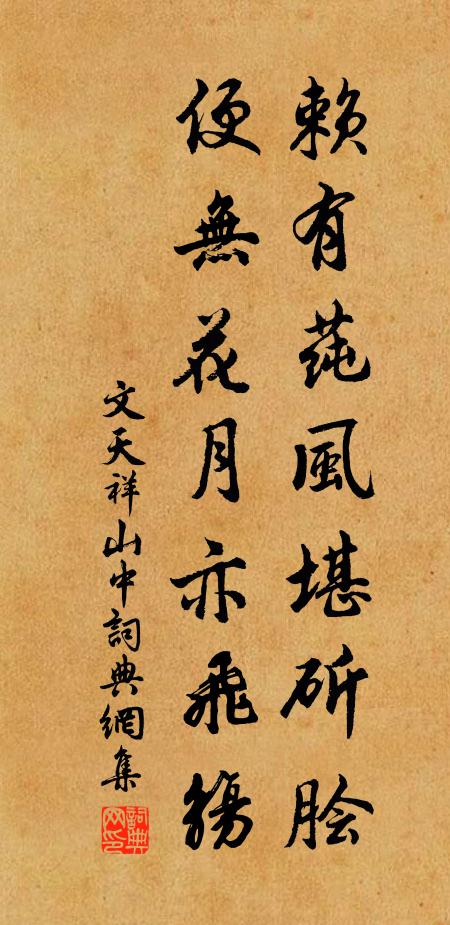 賴有莼風堪斫膾
便無花月亦飛觴
文天祥山中詞典網集
詞典網印